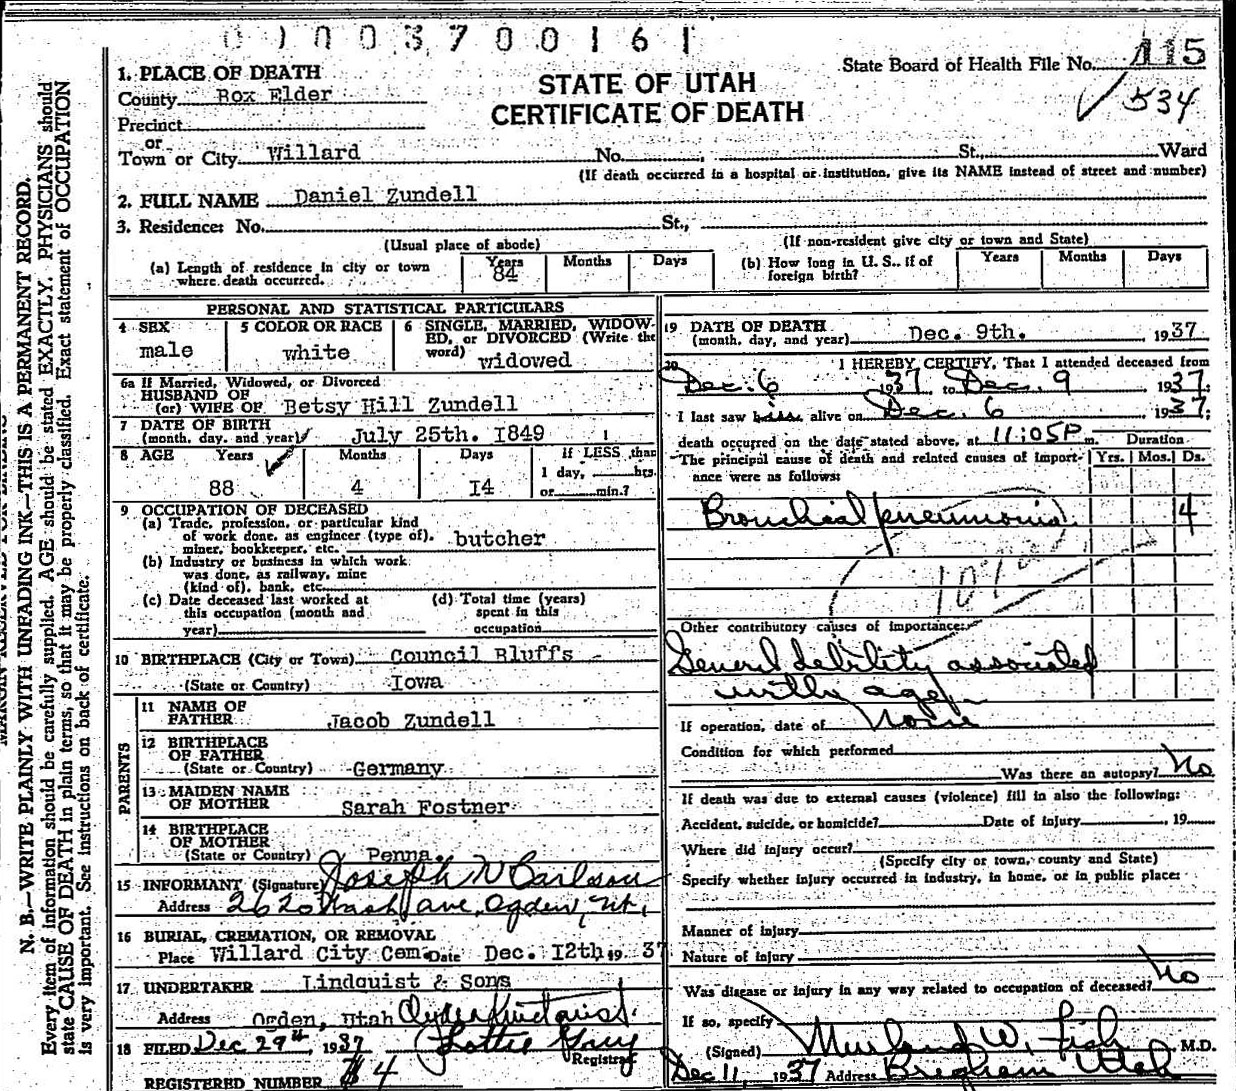 0 1 0 0 3 7 0 0 1 6 1
1. PLACE OF DEATH
County Box Elder
Precinct
or
Town or City Willard No. St., Ward
(If death occurred in a hospital or institution, give its NAME instead of street and number)
STATE OF UTAH
CERTIFICATE OF DEATH
State Board of Health File No. 115
534
2. FULL NAME Daniel Zundell
3. Residence: No. St.,
(Usual place of abode) (If non-resident give city or town and State)
(a) Length of residence in city or town where death occurred. Years 84 Months Days
(b) How long in U. S., if of foreign birth? Years Months Days
PERSONAL AND STATISTICAL PARTICULARS
4 SEX male
5 COLOR OR RACE white
6 SINGLE, MARRIED, WIDOWED, or DIVORCED (Write the word) widowed
6a If Married, Widowed, or Divorced
HUSBAND OF
(or) WIFE OF Betsy Hill Zundell
7 DATE OF BIRTH
(month, day, and year) July 25th. 1849
8 AGE Years 88 Months 4 Days 14
If LESS than
1 day, hrs.
or min.?
9 OCCUPATION OF DECEASED
(a) Trade, profession, or particular kind
of work done, as engineer (type of),
miner, bookkeeper, etc. butcher
(b) Industry or business in which work
was done, as railway, mine
(kind of), bank, etc.
(c) Date deceased last worked at
this occupation (month and
year)
(d) Total time (years)
spent in this
occupation
10 BIRTHPLACE (City or Town) Council Bluffs
(State or Country) Iowa
PARENTS
11 NAME OF
FATHER Jacob Zundell
12 BIRTHPLACE
OF FATHER
(State or Country) Germany
13 MAIDEN NAME
OF MOTHER Sarah Fostner
14 BIRTHPLACE
OF MOTHER
(State or Country) Penna.
15 INFORMANT (Signature) Joseph N Carlson
Address 2620 Wash ave, Ogden, Ut,
16 BURIAL, CREMATION, OR REMOVAL
Place Willard City Cem. Date Dec. 12th 19 37
17 UNDERTAKER Lindquist & Sons
Address Ogden, Utah Clyde Lindquist
18 FILED Dec 29th, 1937 Lottie
Registrar
REGISTERED NUMBER 4
19 DATE OF DEATH
(month, day, and year) Dec. 9th. 1937
20 I HEREBY CERTIFY, That I attended deceased from
Dec. 6 1937 to Dec. 9 1937:
I last saw him alive on Dec. 6 1937;
death occurred on the date stated above, at 11:05P m. Duration
The principal cause of death and related causes of importance were as follows: Yrs. Mos. Ds.
Bronchial pneumonia 4
107a
Other contributory causes of importance:
General debility associated
with age
If operation, date of None
Condition for which performed
Was there an autopsy? No
If death was due to external causes (violence) fill in also the following:
Accident, suicide, or homicide? Date of injury , 19
Where did injury occur?
(Specify city or town, county and State)
Specify whether injury occurred in industry, in home, or in public place:
Manner of injury
Nature of injury
Was disease or injury in any way related to occupation of deceased? No
If so, specify
(Signed) W. Fish M.D.
Dec 11, 1937 Address Brigham Utah
N. B.—WRITE PLAINLY WITH UNFADING INK—THIS IS A PERMANENT RECORD.
Every item of information should be carefully supplied. AGE should be stated EXACTLY. PHYSICIANS should
state CAUSE OF DEATH in plain terms, so that it may be properly classified. Exact statement of OCCUPATION
is very important. See instructions on back of certificate.